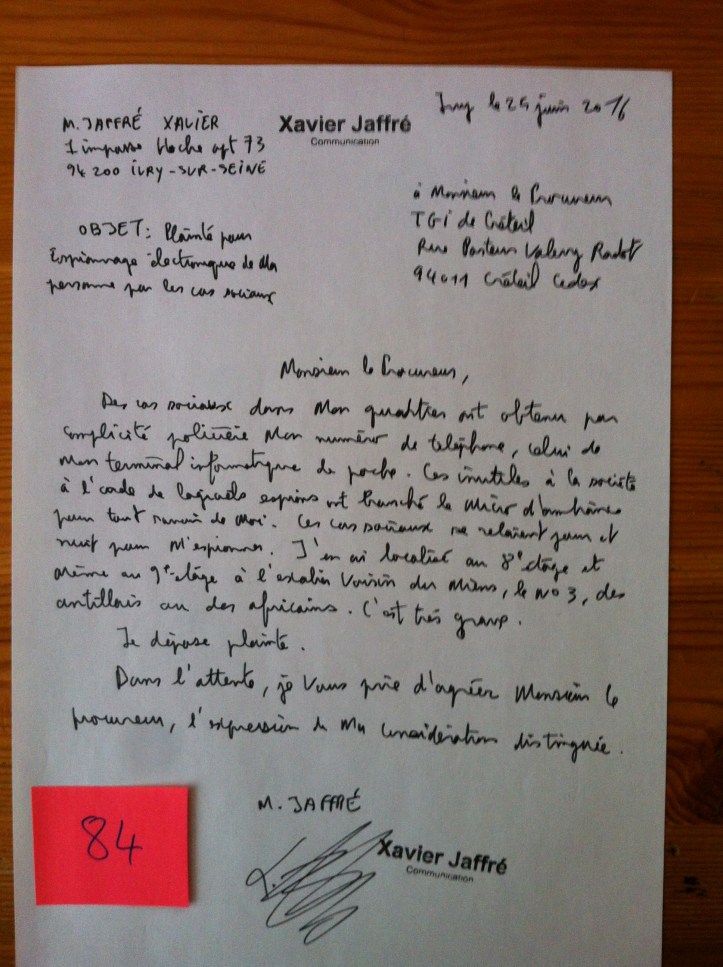 Ivry le 25 juin 2016
M. JAFFRÉ XAVIER
1 impasse Hoche apt 73
94 200 IVRY-SUR-SEINE
Xavier Jaffré
Communication
à Monsieur le Procureur
TGI de Créteil
Rue Pasteur Valery Radot
94011 Créteil Cedex
OBJET: Plainte pour
Espionnage électronique de Ma
personne par les cas sociaux
Monsieur le Procureur,
Des cas sociaux dans Mon quartier ont obtenu par
complicité policière Mon numéro de téléphone, celui de
Mon terminal informatique de poche. Ces inutiles à la société
à l'aide de logiciels espions ont branché le Micro d'ambiance
pour tout savoir de Moi. Ces cas sociaux se relaient jour et
nuit pour M'espionner. J'en ai localisé au 8e étage et
même au 9e étage à l'escalier Voisin du Mien, le No 3, des
antillais ou des africains. C'est très grave.
Je dépose plainte.
Dans l'attente, je Vous prie d'agréer Monsieur le
procureur, l'expression de Ma Considération distinguée.
M. JAFFRÉ
Xavier Jaffré
Communication
84